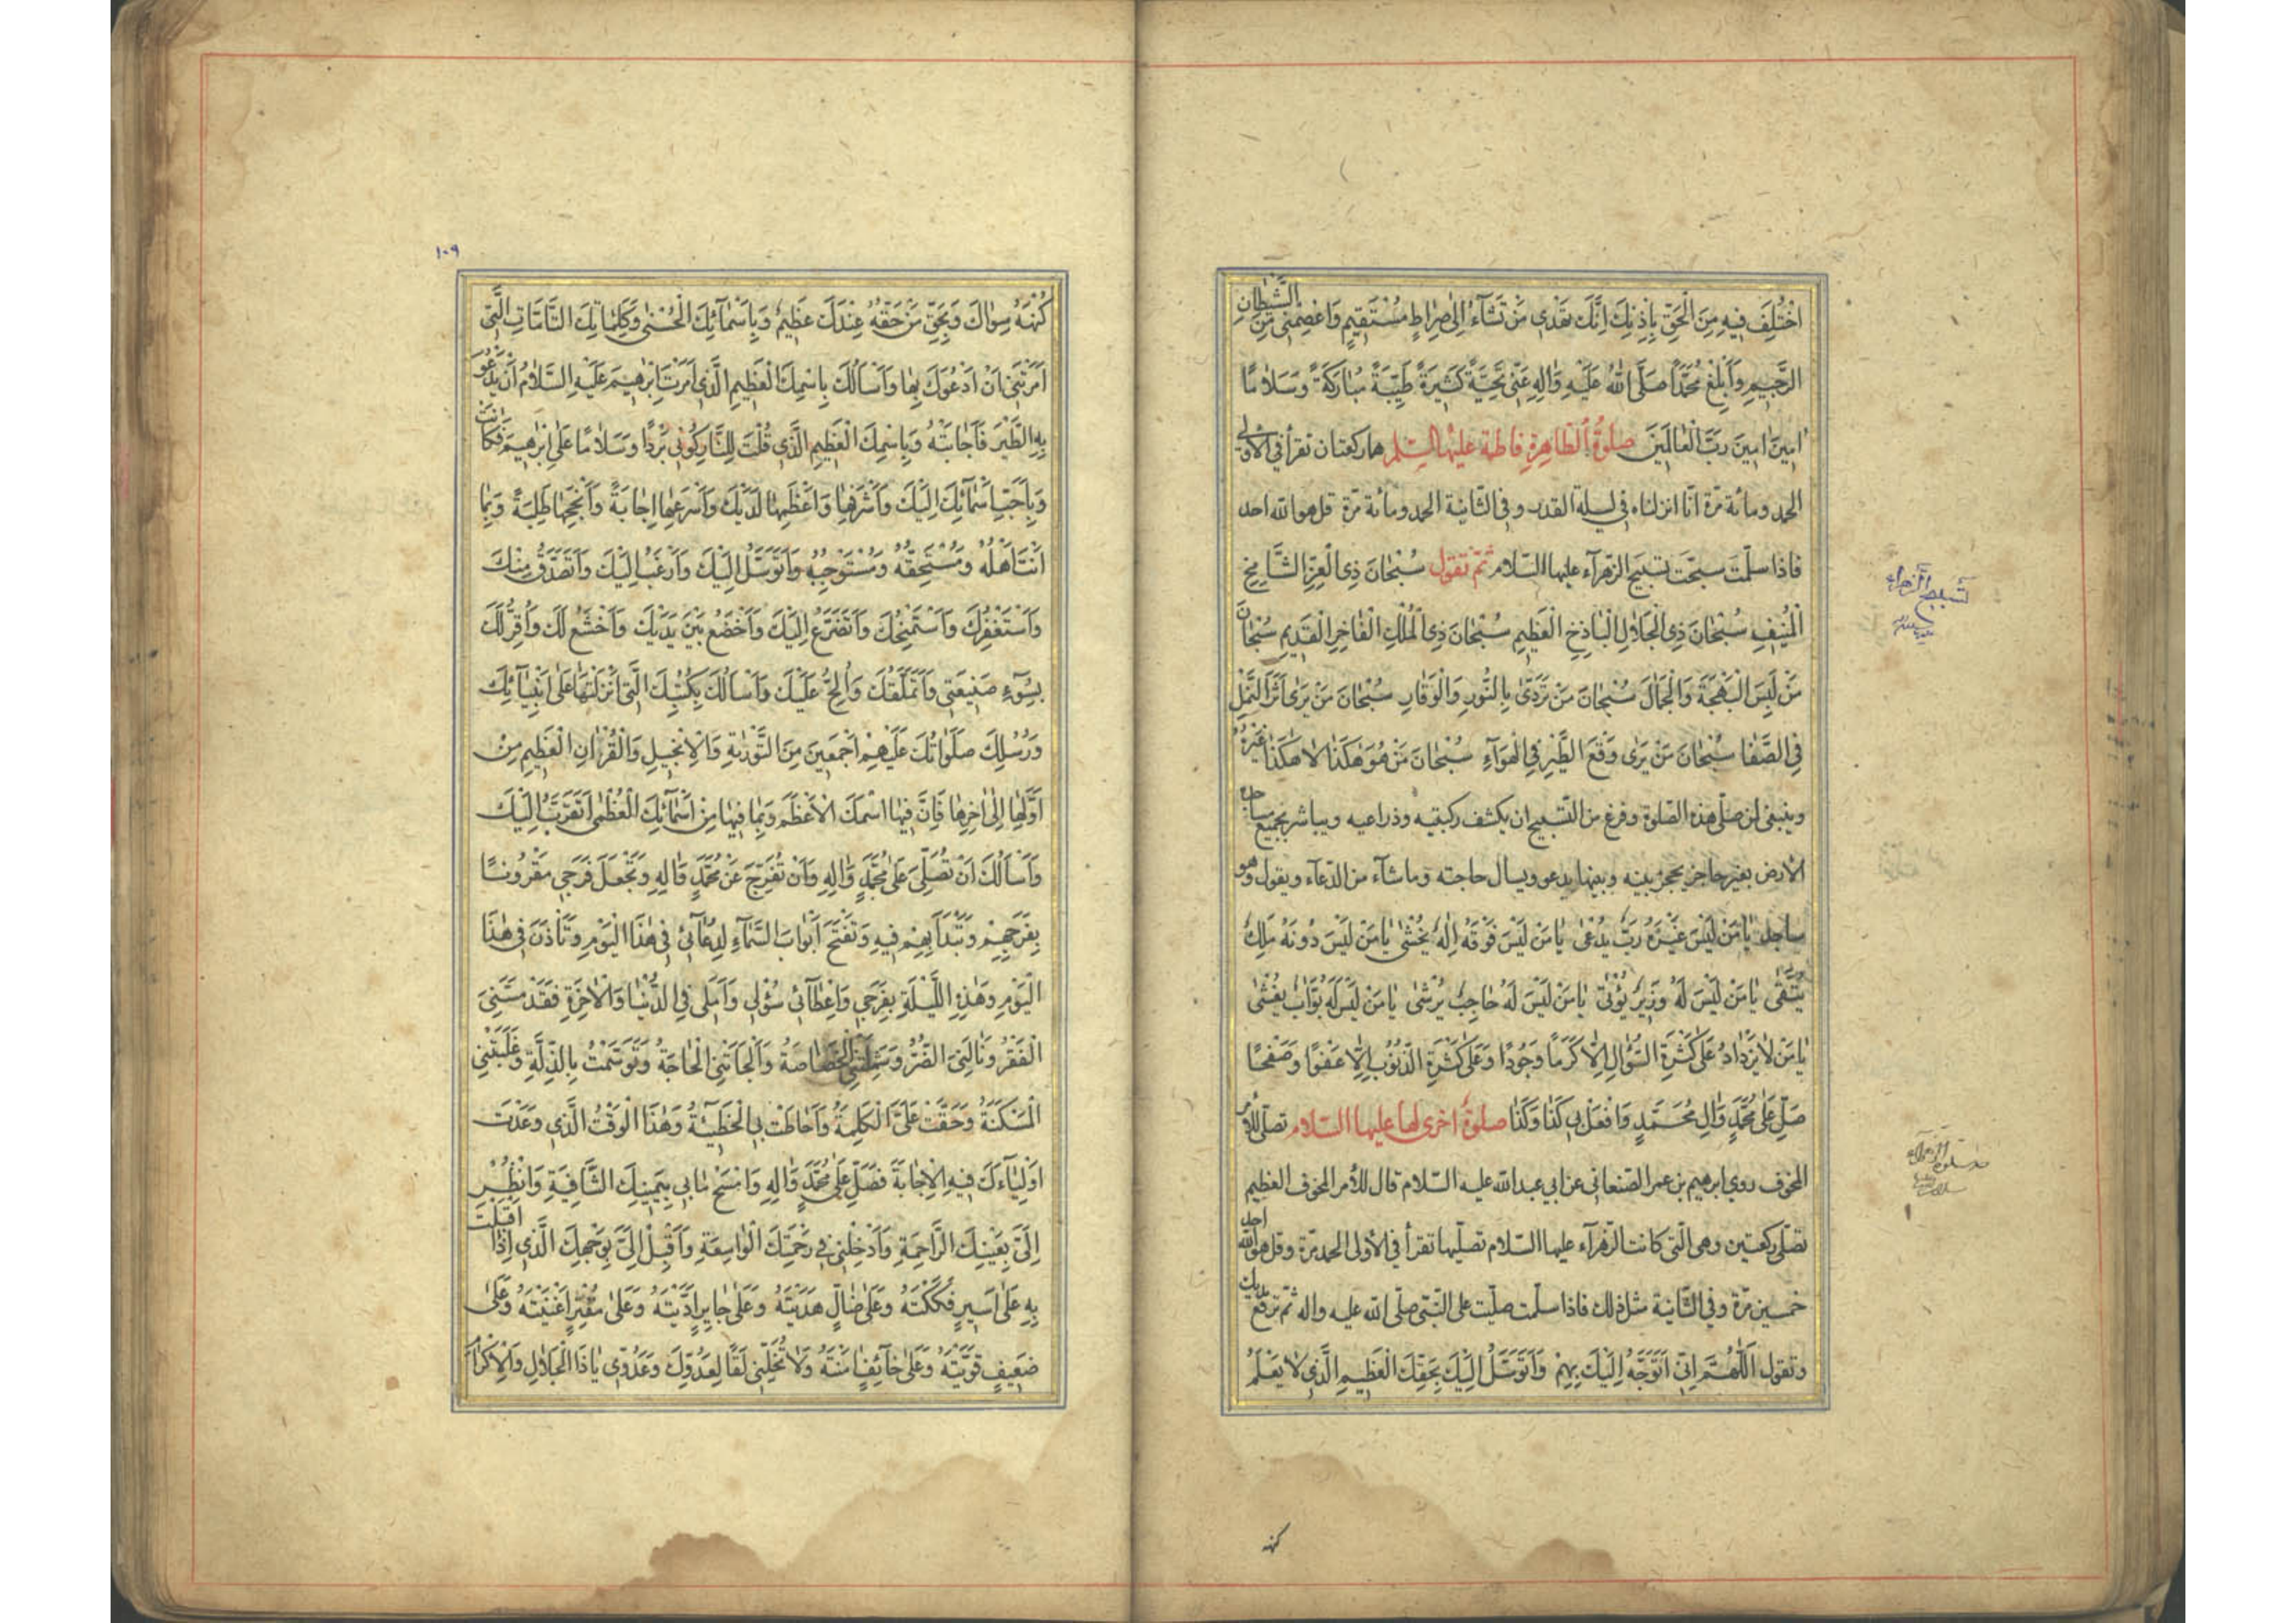 اخْتُلِفَ فِيهِ مِنَ الْحَقِّ بِإِذْنِكَ اِنَّكَ تَهْدِي مَنْ تَشَآءُ اِلٰى صِرَاطٍ مُسْتَقِيمٍ وَاعْصِمْنِي مِنَ الشَّيْطَانِ
الرَّجِيمِ وَاَبْلِغْ مُحَمَّدًا صَلَّى اللّٰهُ عَلَيْهِ وَاٰلِهِ عَنِّي تَحِيَّةً كَثِيرَةً طَيِّبَةً مُبَارَكَةً وَسَلَامًا
اٰمِينَ اٰمِينَ رَبَّ الْعَالَمِينَ صلوة الطاهرة فاطمة عليها السلم هما ركعتان تقرأ في الاولى
الحمد ومائة مرّة انّا انزلناه في ليلة القدر وفي الثّانية الحمد ومائة مرّة قل هو الله احد
فاذا سلّمت سبّحت تسبيح الزهرآء عليها السّلام ثمّ تقول سُبْحَانَ ذِي الْعِزِّ الشَّامِخِ
الْمُنِيفِ سُبْحَانَ ذِي الْجَلَالِ الْبَاذِخِ الْعَظِيمِ سُبْحَانَ ذِي الْمُلْكِ الْفَاخِرِ الْقَدِيمِ سُبْحَانَ
مَنْ لَبِسَ الْبَهْجَةَ وَالْجَمَالَ سُبْحَانَ مَنْ تَرَدّٰى بِالنُّورِ وَالْوَقَارِ سُبْحَانَ مَنْ يَرٰى اَثَرَ النَّمْلِ
فِي الصَّفَا سُبْحَانَ مَنْ يَرٰى وَقْعَ الطَّيْرِ فِي الْهَوَآءِ سُبْحَانَ مَنْ هُوَ هٰكَذَا لَا هٰكَذَا غَيْرُهُ
وينبغي لمن صلّى هذه الصّلوة وفرغ من التّسبيح ان يكشف ركبتيه وذراعيه ويباشر بجميع مساجده
الأرض بغير حاجز يحجز بينه وبينها يدعو ويسأل حاجته وما شآء من الدّعآء ويقول وهو
ساجد يَا مَنْ لَيْسَ غَيْرَهُ رَبٌّ يُدْعٰى يَا مَنْ لَيْسَ فَوْقَهُ اِلٰهٌ يُخْشٰى يَا مَنْ لَيْسَ دُونَهُ مَلِكٌ
يُتَّقٰى يَا مَنْ لَيْسَ لَهُ وَزِيرٌ يُؤْتٰى يَا مَنْ لَيْسَ لَهُ حَاجِبٌ يُرْشٰى يَا مَنْ لَيْسَ لَهُ بَوَّابٌ يُغْشٰى
يَا مَنْ لَا يَزْدَادُ عَلٰى كَثْرَةِ السُّؤَالِ اِلَّا كَرَمًا وَجُودًا وَعَلٰى كَثْرَةِ الذُّنُوبِ اِلَّا عَفْوًا وَصَفْحًا
صَلِّ عَلٰى مُحَمَّدٍ وَاٰلِ مُحَمَّدٍ وَافْعَلْ بِي كَذَا وَكَذَا صلوة اخرى لها عليها السّلام تصلّى للأمر
المخوف روي ابرهيم بن عمر الصّنعاني عن ابي عبد الله عليه السّلام قال للأمر المخوف العظيم
تصلّي ركعتين وهي الّتي كانت الزّهرآء عليها السّلام تصلّيها تقرأ في الأولى الحمد مرّة وقل هو الله احد
خمسين مرّة وفي الثّانية مثل ذلك فاذا سلّمت صلّيت على النّبيّ صلّى الله عليه واله ثمّ ترفع يديك
وتقول اَللّٰهُمَّ اِنِّي اَتَوَجَّهُ اِلَيْكَ بِهِمْ وَاَتَوَسَّلُ اِلَيْكَ بِحَقِّكَ الْعَظِيمِ الَّذِي لَا يَعْلَمُ
كنهه
تسبيح الزهراء
١٠٩
كُنْهَهُ سِوَاكَ وَبِحَقِّ مَنْ حَقُّهُ عِنْدَكَ عَظِيمٌ وَبِاَسْمَآئِكَ الْحُسْنٰى وَكَلِمَاتِكَ التَّامَّاتِ الَّتِي
اَمَرْتَنِي اَنْ اَدْعُوَكَ بِهَا وَاَسْاَلُكَ بِاسْمِكَ الْعَظِيمِ الَّذِي اَمَرْتَ اِبْرٰهِيمَ عَلَيْهِ السَّلَامُ اَنْ يَدْعُوَ
بِهِ الطَّيْرَ فَاَجَابَتْهُ وَبِاسْمِكَ الْعَظِيمِ الَّذِي قُلْتَ لِلنَّارِ كُونِي بَرْدًا وَسَلَامًا عَلٰى اِبْرٰهِيمَ فَكَانَتْ
وَبِاَحَبِّ اَسْمَآئِكَ اِلَيْكَ وَاَشْرَفِهَا وَاَعْظَمِهَا لَدَيْكَ وَاَسْرَعِهَا اِجَابَةً وَاَنْجَحِهَا طَلِبَةً وَبِمَا
اَنْتَ اَهْلُهُ وَمُسْتَحِقُّهُ وَمُسْتَوْجِبُهُ وَاَتَوَسَّلُ اِلَيْكَ وَاَرْغَبُ اِلَيْكَ وَاَتَصَدَّقُ مِنْكَ
وَاَسْتَغْفِرُكَ وَاَسْتَمْنِحُكَ وَاَتَضَرَّعُ اِلَيْكَ وَاَخْضَعُ بَيْنَ يَدَيْكَ وَاَخْشَعُ لَكَ وَاُقِرُّ لَكَ
بِسُوٓءِ صَنِيعَتِي وَاَتَمَلَّقُكَ وَاُلِحُّ عَلَيْكَ وَاَسْاَلُكَ بِكُتُبِكَ الَّتِي اَنْزَلْتَهَا عَلٰى اَنْبِيَآئِكَ
وَرُسُلِكَ صَلَوَاتُكَ عَلَيْهِمْ اَجْمَعِينَ مِنَ التَّوْرٰيةِ وَالْاِنْجِيلِ وَالْقُرْاٰنِ الْعَظِيمِ مِنْ
اَوَّلِهَا اِلٰى اٰخِرِهَا فَاِنَّ فِيهَا اسْمَكَ الْاَعْظَمَ وَبِمَا فِيهَا مِنْ اَسْمَآئِكَ الْعُظْمٰى اَتَقَرَّبُ اِلَيْكَ
وَاَسْاَلُكَ اَنْ تُصَلِّيَ عَلٰى مُحَمَّدٍ وَاٰلِهِ وَاَنْ تُفَرِّجَ عَنْ مُحَمَّدٍ وَاٰلِهِ وَتَجْعَلَ فَرَجِي مَقْرُونًا
بِفَرَجِهِمْ وَتَبْدَاَ بِهِمْ فِيهِ وَتَفْتَحَ اَبْوَابَ السَّمَآءِ لِدُعَآئِي فِي هٰذَا الْيَوْمِ وَتَاْذَنَ فِي هٰذَا
الْيَوْمِ وَهٰذِهِ اللَّيْلَةِ بِفَرَجِي وَاِعْطَآئِي سُؤْلِي وَاَمَلِي فِي الدُّنْيَا وَالْاٰخِرَةِ فَقَدْ مَسَّنِيَ
الْفَقْرُ وَنَالَنِيَ الضُّرُّ وَشَمِلَتْنِي الْخَصَاصَةُ وَاَلْجَاَتْنِي الْحَاجَةُ وَتَوَسَّمْتُ بِالذِّلَّةِ وَغَلَبَتْنِي
الْمَسْكَنَةُ وَحَقَّتْ عَلَيَّ الْكَلِمَةُ وَاَحَاطَتْ بِي الْخَطِيٓئَةُ وَهٰذَا الْوَقْتُ الَّذِي وَعَدْتَ
اَوْلِيَآءَكَ فِيهِ الْاِجَابَةَ فَصَلِّ عَلٰى مُحَمَّدٍ وَاٰلِهِ وَامْسَحْ مَا بِي بِيَمِينِكَ الشَّافِيَةِ وَانْظُرْ
اِلَيَّ بِعَيْنِكَ الرَّاحِمَةِ وَاَدْخِلْنِي فِي رَحْمَتِكَ الْوَاسِعَةِ وَاَقْبِلْ اِلَيَّ بِوَجْهِكَ الَّذِي اِذَا اَقْبَلْتَ
بِهِ عَلٰى اَسِيرٍ فَكَكْتَهُ وَعَلٰى ضَالٍّ هَدَيْتَهُ وَعَلٰى جَايِرٍ اَدَّيْتَهُ وَعَلٰى مُقْتِرٍ اَغْنَيْتَهُ وَعَلٰى
ضَعِيفٍ قَوَّيْتَهُ وَعَلٰى خَآئِفٍ اٰمَنْتَهُ وَلَا تُخَلِّنِي لَقًا لِعَدُوِّكَ وَعَدُوِّي يَا ذَا الْجَلَالِ وَالْاِكْرَامِ